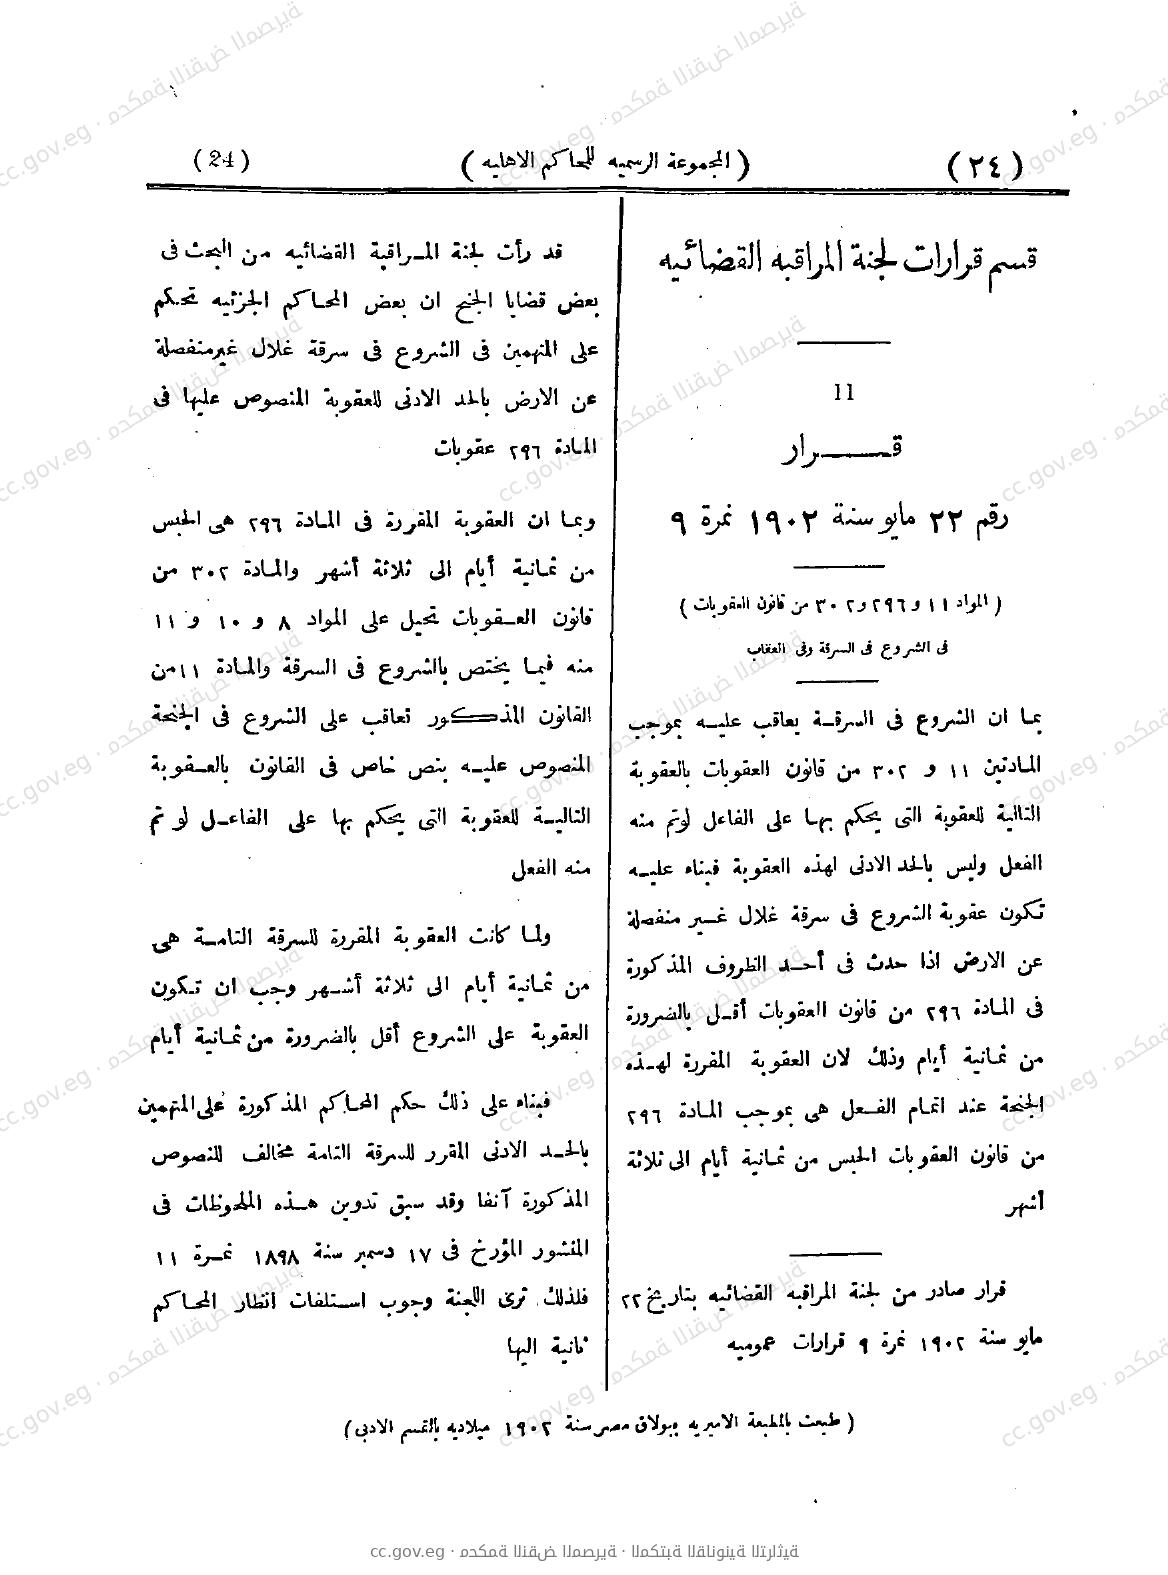 ( ٢٤ )
( المجموعة الرسميه للمحاكم الاهليه )
( 24 )
قسم قرارات لجنة المراقبه القضائيه
11
قــــرار
رقم ٢٢ مايو سنة ١٩٠٢ نمرة ٩
( المواد ١١ و ٢٩٦ و ٣٠٢ من قانون العقوبات )
فى الشروع فى السرقة وفى العقاب
بما ان الشروع فى السرقة يعاقب عليه بموجب
المادتين ١١ و ٣٠٢ من قانون العقوبات بالعقوبة
التالية للعقوبة التى يحكم بها على الفاعل لو تم منه
الفعل وليس بالحد الادنى لهذه العقوبة فبناء عليه
تكون عقوبة الشروع فى سرقة غلال غير منفصلة
عن الارض اذا حدث فى أحد الظروف المذكورة
فى المادة ٢٩٦ من قانون العقوبات أقل بالضرورة
من ثمانية أيام وذلك لان العقوبة المقررة لهذه
الجنحة عند اتمام الفعل هى بموجب المادة ٢٩٦
من قانون العقوبات الحبس من ثمانية أيام الى ثلاثة
أشهر
قرار صادر من لجنة المراقبه القضائيه بتاريخ ٢٢
مايو سنة ١٩٠٢ نمرة ٩ قرارات عموميه
قد رأت لجنة المراقبة القضائيه من البحث فى
بعض قضايا الجنح ان بعض المحاكم الجزئيه تحكم
على المتهمين فى الشروع فى سرقة غلال غير منفصلة
عن الارض بالحد الادنى للعقوبة المنصوص عليها فى
المادة ٢٩٦ عقوبات
وبما ان العقوبة المقررة فى المادة ٢٩٦ هى الحبس
من ثمانية أيام الى ثلاثة أشهر والمادة ٣٠٢ من
قانون العقوبات تحيل على المواد ٨ و ١٠ و ١١
منه فيما يختص بالشروع فى السرقة والمادة ١١ من
القانون المذكور تعاقب على الشروع فى الجنحة
المنصوص عليه بنص خاص فى القانون بالعقوبة
التالية للعقوبة التى يحكم بها على الفاعل لو تم
منه الفعل
ولما كانت العقوبة المقررة للسرقة التامة هى
من ثمانية أيام الى ثلاثة أشهر وجب ان تكون
العقوبة على الشروع أقل بالضرورة من ثمانية أيام
فبناء على ذلك حكم المحاكم المذكورة على المتهمين
بالحد الادنى المقرر للسرقة التامة مخالف للنصوص
المذكورة آنفا وقد سبق تدوين هذه الملحوظات فى
المنشور المؤرخ فى ١٧ دسمبر سنة ١٨٩٨ نمرة ١١
فلذلك ترى اللجنة وجوب استلفات انظار المحاكم
ثانية اليها
( طبعت بالمطبعة الاميريه ببولاق مصر سنة ١٩٠٢ ميلاديه بالقسم الادبى )
cc.gov.eg · محكمة النقض المصرية · المكتبة القانونية التراثية